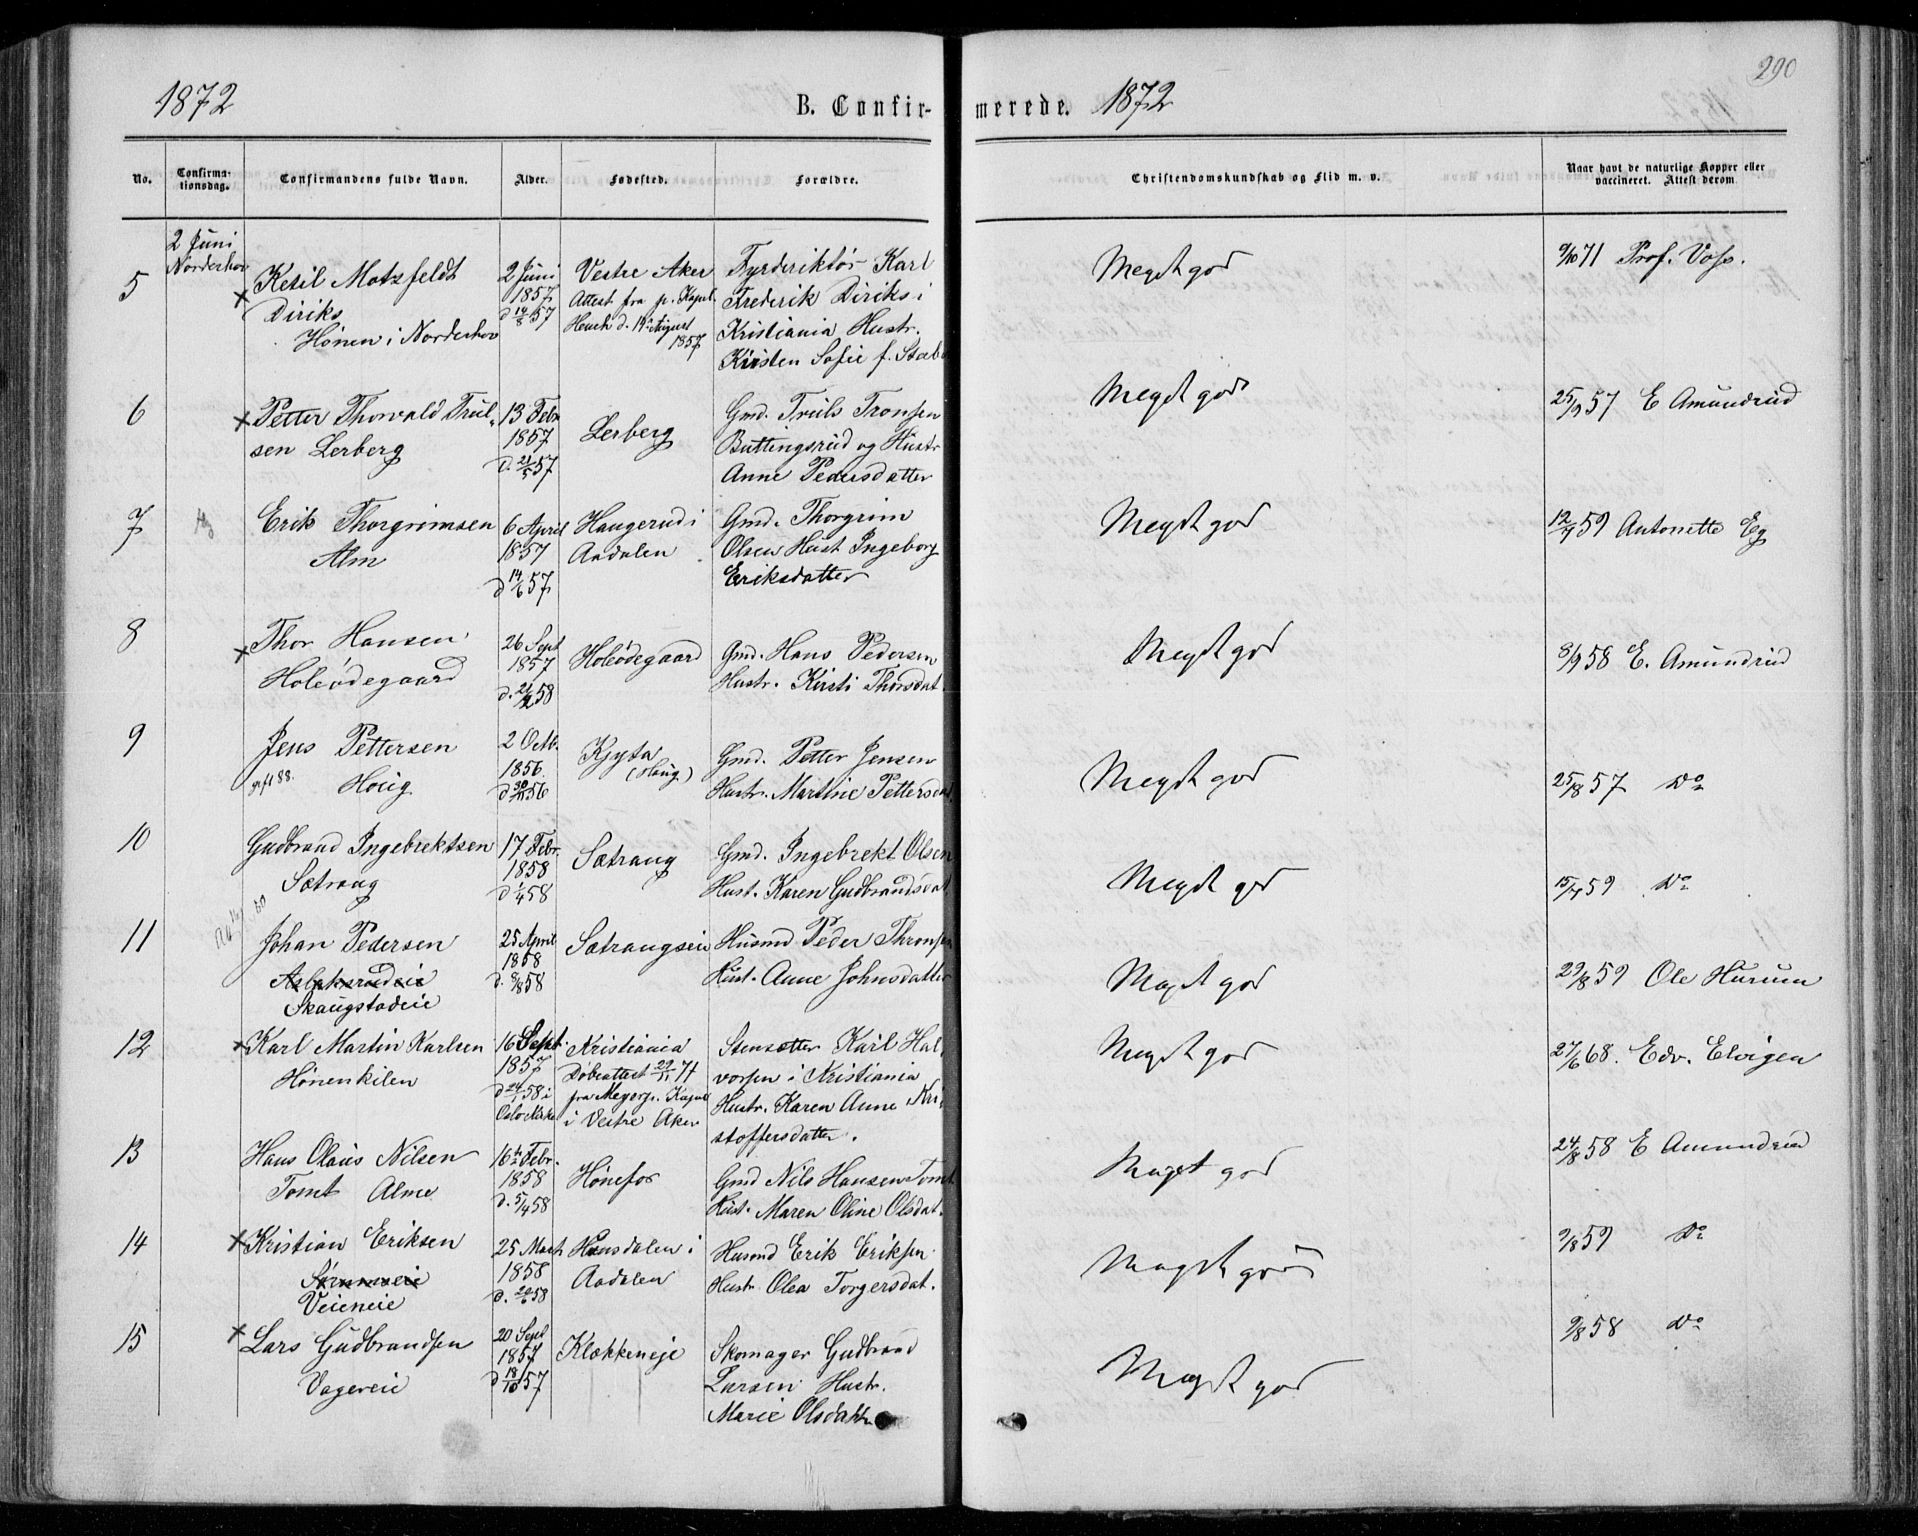 290
1872
B. Confirmerede. 1872
No. Confirmationsdag. Confirmandens fulde Navn. Alder. Fødested. Forældre. Christendomskundskab og Flid m. v. Naar havt de naturlige Kopper eller vaccineret. Attest derom
2 Juni
Norderhov
5 × Ketil Motzfeldt
Diriks
Hönen i Norderhov
2 Juni
1857
d 14/8 57
Vestre Aker
Attest fra p. Kapel.
Heuch d. 14 August
1857
Fyrderiktör Karl
Frederik Diriks i
Kristiania Hustr.
Kirsten Sofie f.
Meget god
9/10 71 Prof. Voss.
6 × Petter Thorvald Trul-
sen Lerberg
13 Febr
1857
d. 21/5 57
Lerberg
Gmd. Truls Tronsen
Buttingsrud og Hustr
Anne Pedersdatter
Meget god
25/9 57 E Amundrud
7 Erik Thorgrimsen
Alm
6 April
1857
d 14/6 57
Haugerud i
Aadalen
Gmd. Thorgrim
Olsen Hust Ingeborg
Eriksdatter
Meget god
12/9 59 Antonette Eg
8 × Thor Hansen
Holeödegaard
26 Sept
1857
d. 21/2 58
Holeödegaard
Gmd. Hans Pedersen
Hustr. Kirsti Thorsdat.
Meget god
8/9 58 E. Amundrud
9 Jens Pettersen
gift 88. Houg
2 Octb.
1856.
d 30/11 56
Kjyta
(Haug)
Gmd. Petter Jensen
Hustr. Martine Pettersdat
Meget god
25/8 57 Do
10 Gudbrand Ingebrektsen
Sætrang
17 Febr.
1858
d 1/4 58
Sætrang
Gmd. Ingebrekt Olsen
Hust. Karen Gudbrandsdat
Meget god
15/9 59 Do
11 Johan Pedersen
Aslaksrudeie
Skaugstadeie
25 April
1858
d. 8/8 58
Sætrangseie
Husmd Peder Thronsen
Hust. Anne Johnsdatter
Meget god
29/8 59 Ole Hurum
12 × Karl Martin Karlsen
Hönenkilen
16 Sept.
1857
d 24/1 58 i
Oslo Kirke
Kristiania
Döbeattest 29/11 71
fra Meyer p. Kapel
i Vestre Aker
Stensætter Karl Hal-
vorsen i Kristiania
Hustr. Karen Anne Kri-
stoffersdatter.
Meget god
27/6 68. Edv. Elvigen
13 Hans Olaus Nilsen
Tomt Alme
16 Febr.
1858
d. 5/4 58
Hönefos
Gmd Nils Hansen Tomt
Hust. Maren Oline Olsdat.
Meget god
24/8 58 E Amundrud
14 × Kristian Eriksen
Veieneie
25 Marts
1858
d. 20/6 58
Hensdalen i
Aadalen
Husmd Erik Eriksen
Hustr Olea Torgersdat.
Meget god
9/8 59 Do
15 × Lars Gudbrandsen
Vagereie
20 Sept
1857
d 18/10 57
Klækkeneje
Skomager Gudbrand
Larsen Hustr.
Marie Olsdattr
Meget god
9/8 58 Do